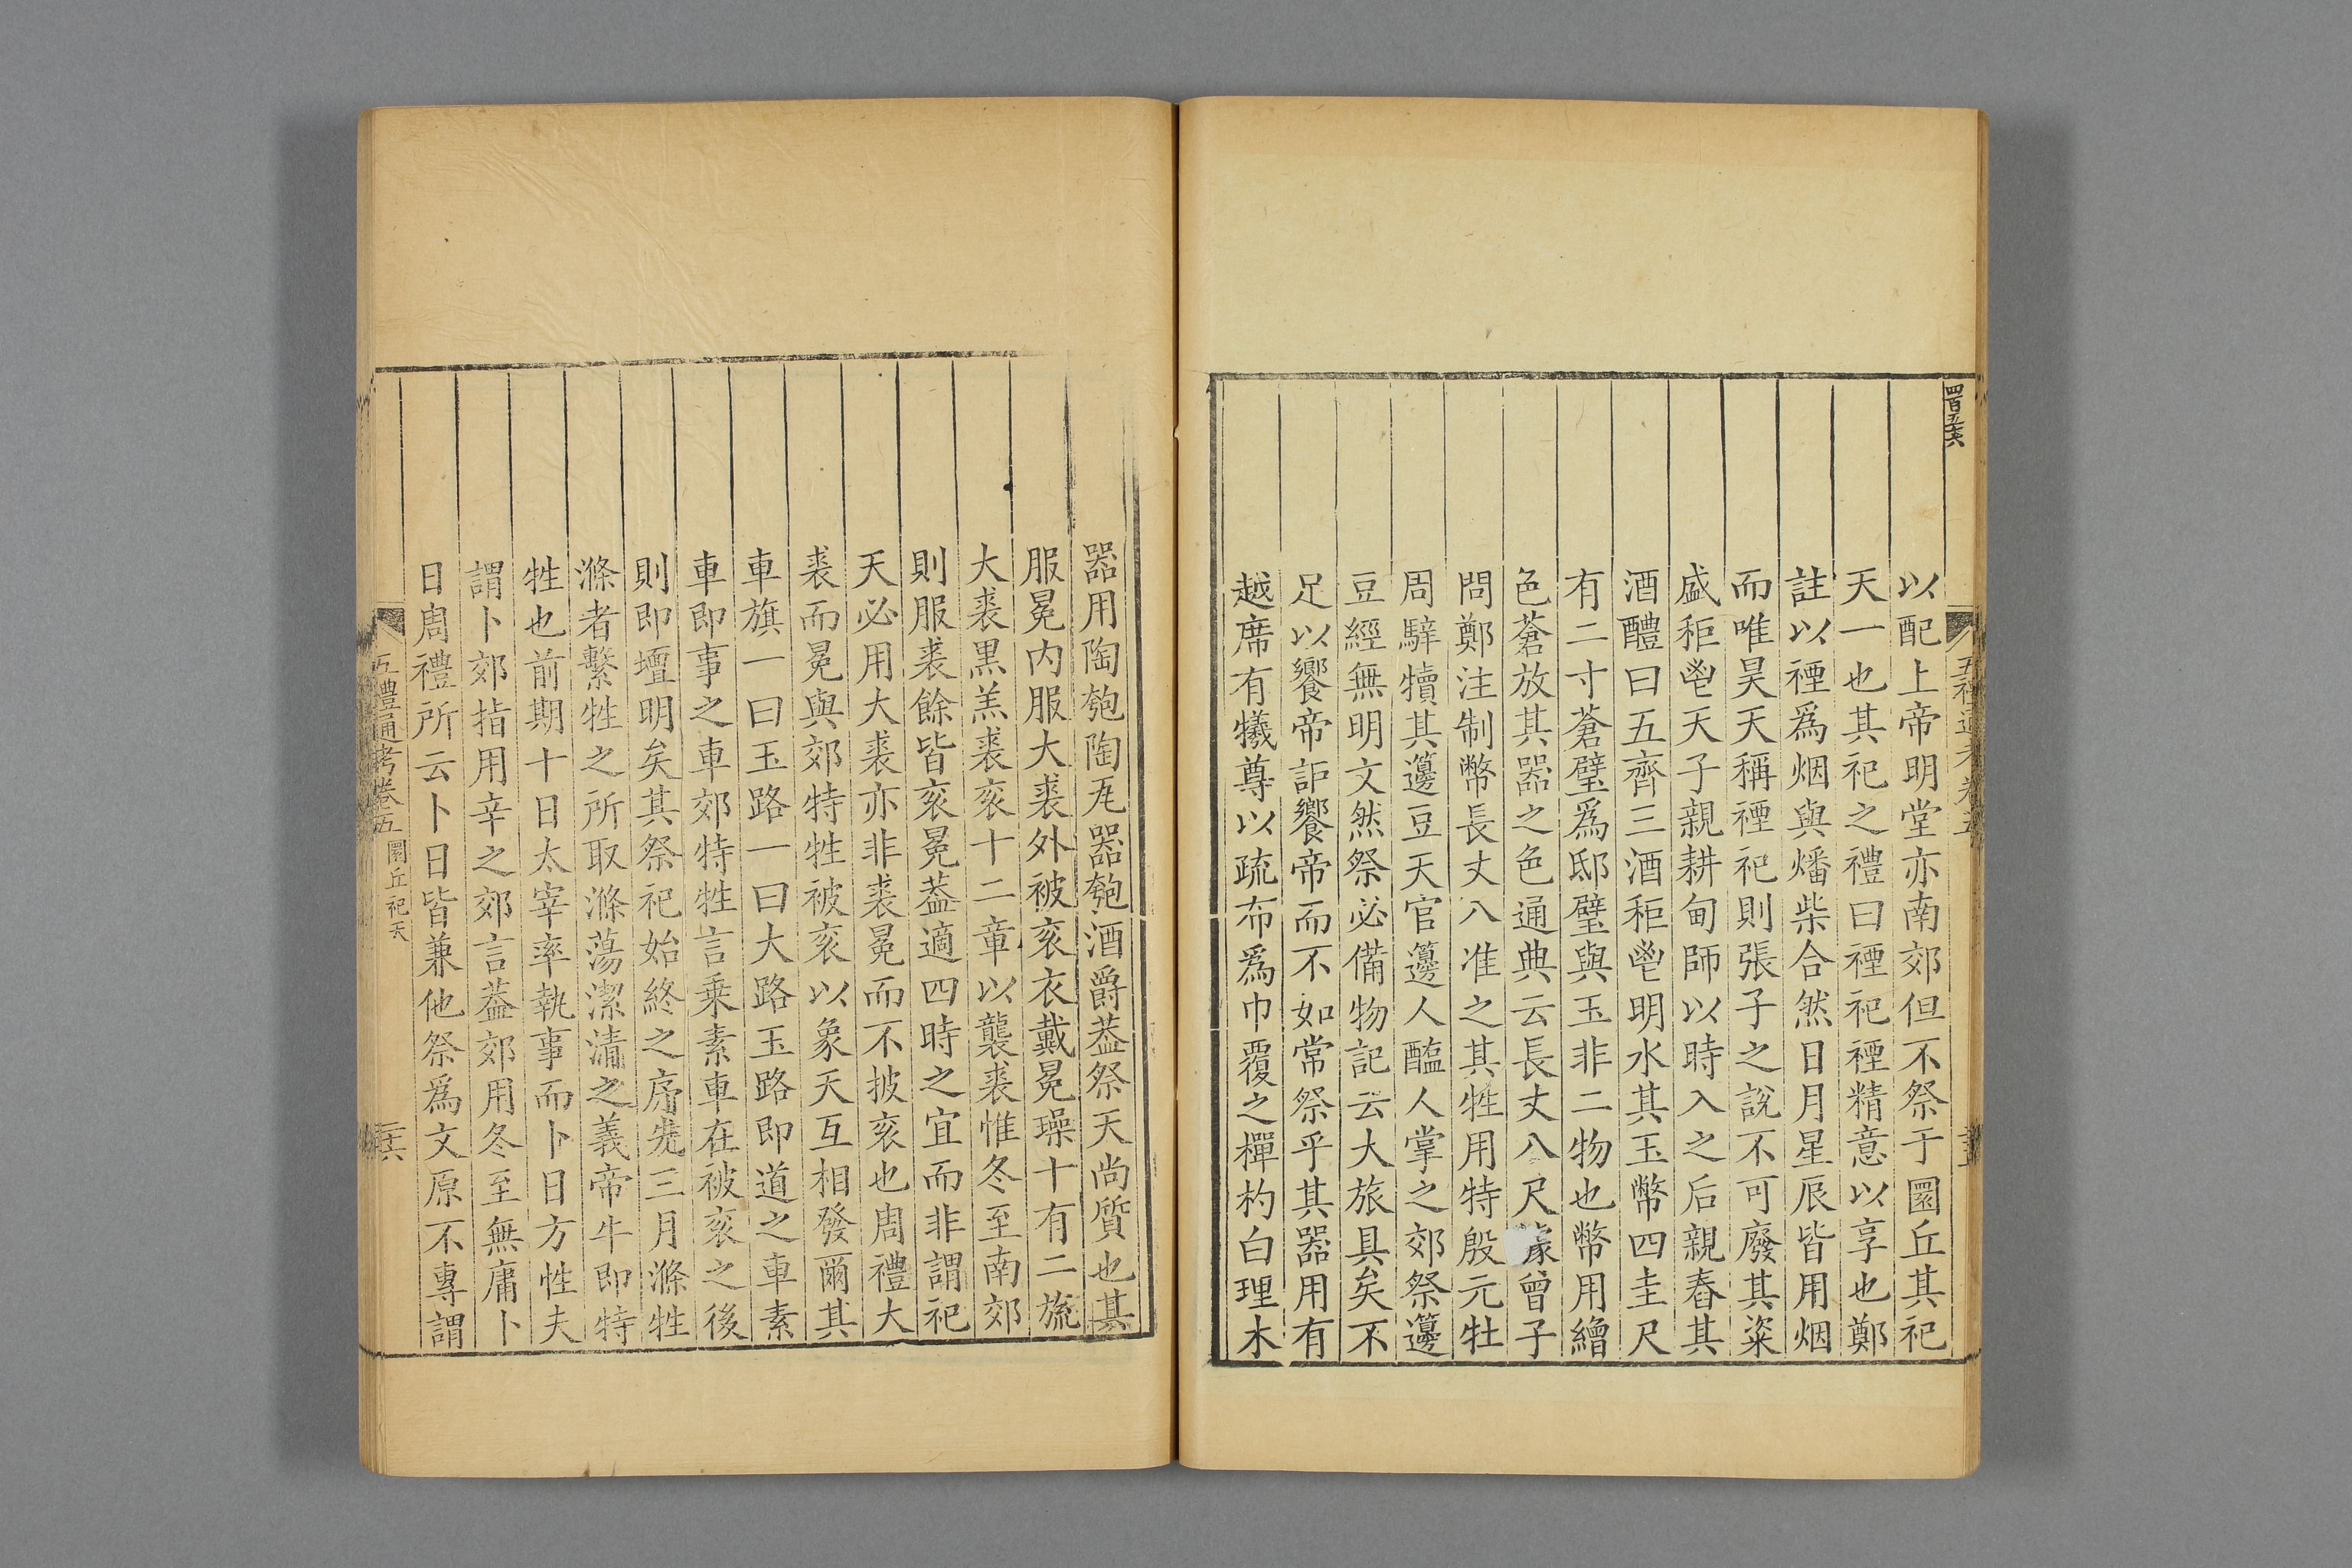 四百五六
五禮通考卷五
以配上帝明堂亦南郊但不祭于圜丘其祀
天一也其祀之禮曰禋祀禋精意以享也鄭
註以禋爲烟與燔柴合然日月星辰皆用烟
而唯昊天稱禋祀則張子之說不可廢其粢
盛秬鬯天子親耕甸師以時入之后親舂其
酒醴曰五齊三酒秬鬯明水其玉幣四圭尺
有二寸蒼璧爲邸璧與玉非二物也幣用繒
色蒼放其器之色通典云長丈八尺據曾子
問鄭注制幣長丈八准之其牲用特殷元牡
周騂犢其籩豆天官籩人醢人掌之郊祭籩
豆經無明文然祭必備物記云大旅具矣不
足以饗帝詎饗帝而不如常祭乎其器用有
越席有犧尊以疏布爲巾覆之樿杓白理木
器用陶匏陶瓦器匏酒爵葢祭天尚質也其
服冕内服大裘外被衮衣戴冕璪十有二旒
大裘黑羔裘衮十二章以襲裘惟冬至南郊
則服裘餘皆衮冕葢適四時之宜而非謂祀
天必用大裘亦非裘冕而不披衮也周禮大
裘而冕與郊特牲被衮以象天互相發爾其
車旗一曰玉路一曰大路玉路即道之車素
車即事之車郊特牲言乗素車在被衮之後
則即壇明矣其祭祀始終之序先三月滌牲
滌者繫牲之所取滌蕩潔清之義帝牛即特
牲也前期十日太宰率執事而卜日方性夫
謂卜郊指用辛之郊言葢郊用冬至無庸卜
日周禮所云卜日皆兼他祭爲文原不專謂
五禮通考卷五 圜丘祀天